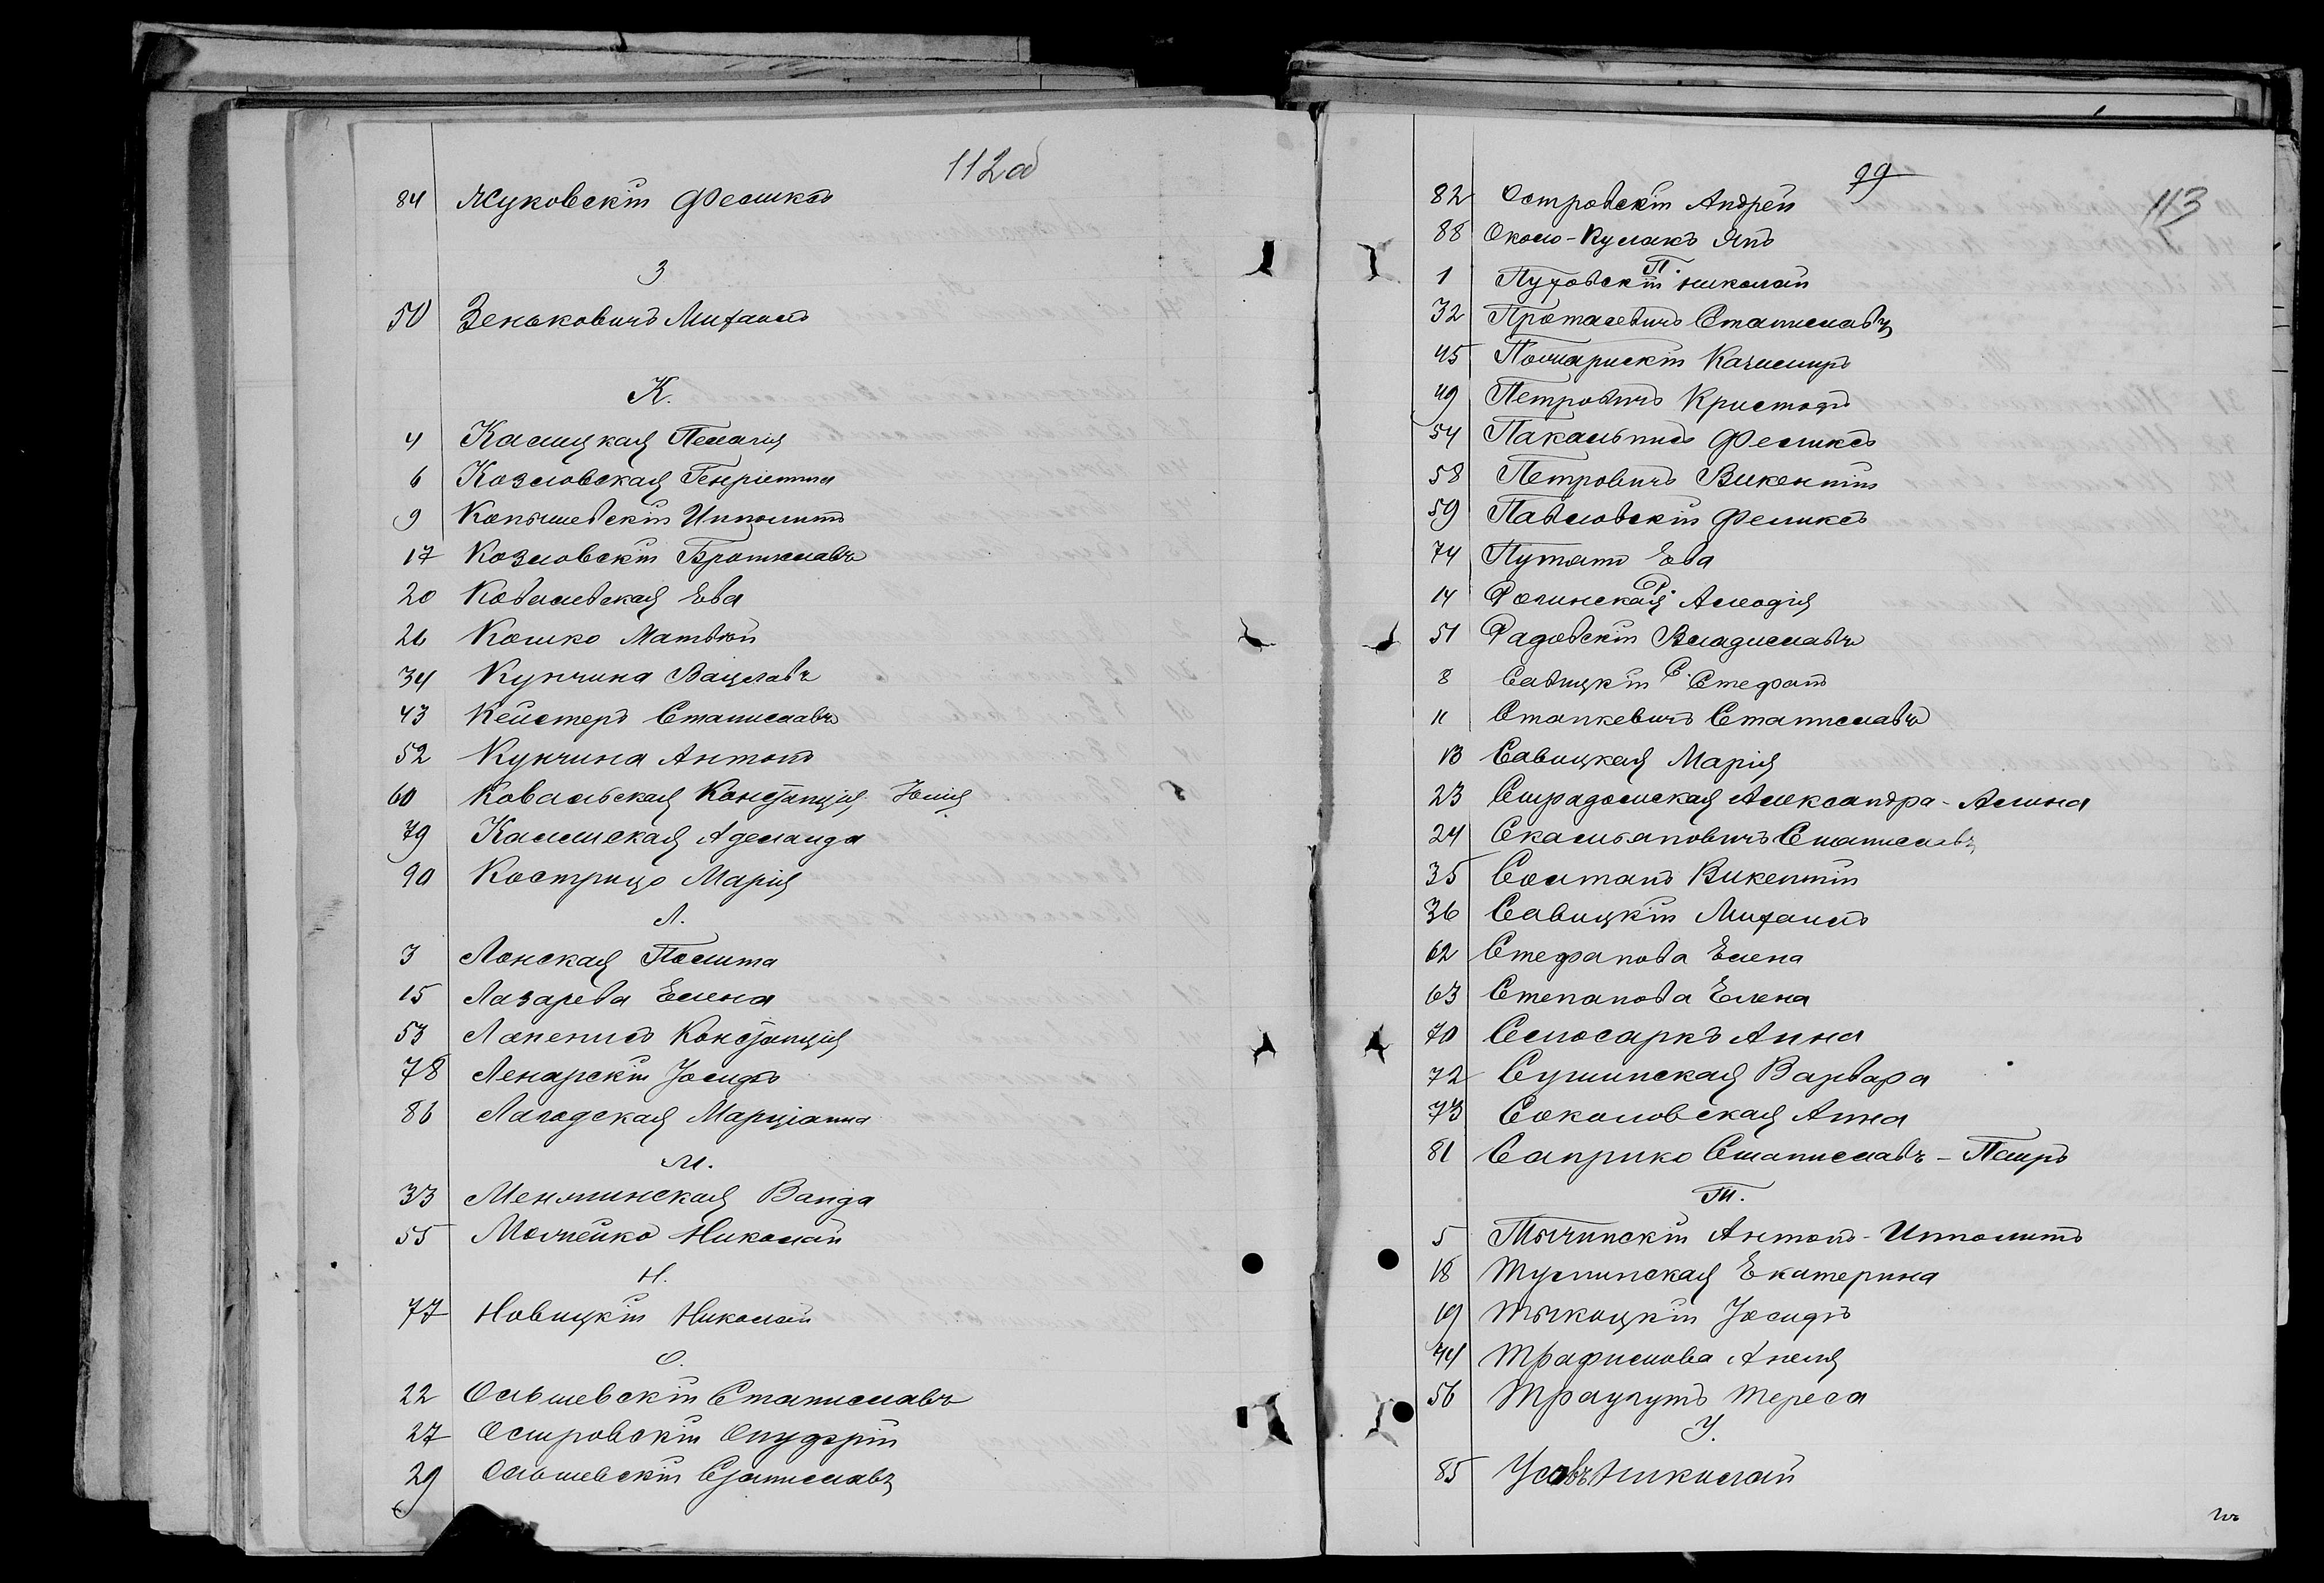 112об
84 Жуковскій Феликсъ
З
50 Зеньковичъ Михаилъ
К.
4 Калицкая Пелагія
6 Козловская Генріетта
9 Копышевскій Ипполитъ
17 Козловскій Брониславъ
20 Ковалевская Ева
26 Кошко Матвѣй
34 Кунчина Вацлавъ
43 Кейстеръ Станиславъ
52 Кунчина Антонъ
60 Ковальская Констанція Юлія
79 Калинская Аделаида
90 Кострицо Марія
Л.
3 Лонская Полита
15 Лазарева Елена
53 Лапенисъ Констанція
78 Ленарскій Іосифъ
86 Лагодская Марціанна
М.
33 Менжинская Ванда
55 Молчейко Николай
Н.
77 Новицкій Николай
О.
22 Ольшевскій Станиславъ
27 Островскій Онуфрій
29 Ольшевскій Станиславъ
99
113
82 Островскій Андрей
88 Около-Кулакъ Янъ
П.
1 Пуховскій Николай
32 Протасевичъ Станиславъ
45 Помарискій Казимиръ
49 Петровичъ Кристофъ
54 Пакальнисъ Феликсъ
58 Петровичъ Викентій
59 Павловскій Феликсъ
74 Путято Ева
Р.
14 Рогинская Алеофія
51 Радовскій Владиславъ
С.
8 Савицкій Стефанъ
11 Станкевичъ Станиславъ
13 Савицкая Марія
23 Страдомская Александра-Алина
24 Скальяновичъ Станиславъ
35 Солтанъ Викентій
36 Савицкій Михаилъ
62 Стефанова Елена
63 Степанова Елена
70 Слюсаркъ Анна
72 Сушинская Варвара
73 Соколовская Анна
81 Саприко Станиславъ-Петръ
Т.
5 Тычинскій Антонъ-Ипполитъ
18 Туслинская Екатерина
19 Тыкоцкій Іосифъ
44 Трафимова Анеля
56 Траугутъ Тереса
У.
85 Усовъ Николай